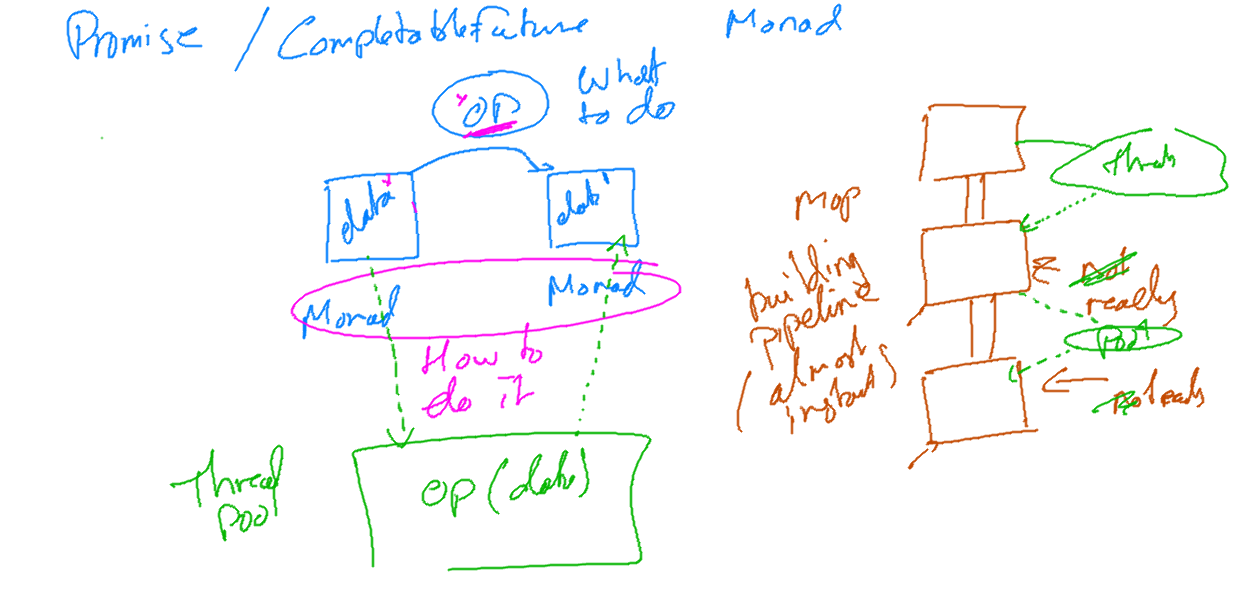 Promise / CompletableFuture
Monad
OP
What
to do
data
dat'
Monad
Monad
How to
do it
thread
pool
op(data)
Mop
building
pipeline
(almost
instant)
not
ready
pool